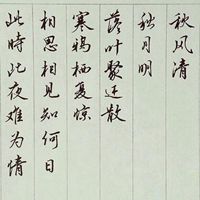 秋风清
秋月明
落叶聚还散
寒鸦栖复惊
相思相见知何日
此時此夜难为情